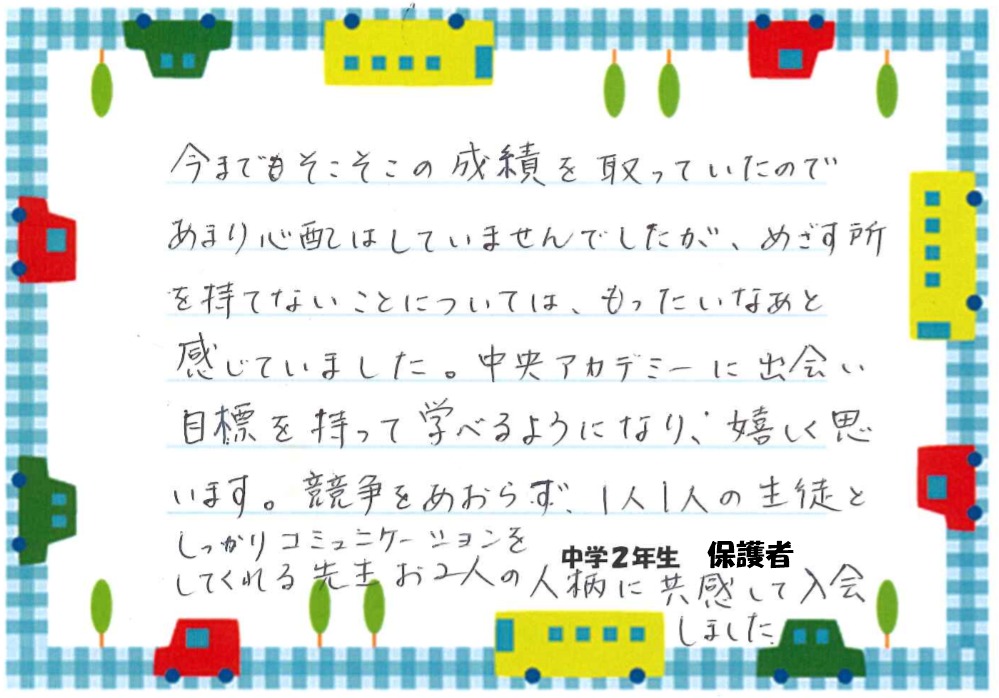 今までもそこそこの成績を取っていたので
あまり心配はしていませんでしたが、めざす所
を持てないことについては、もったいなあと
感じていました。中央アカデミーに出会い
目標を持って学べるようになり、嬉しく思
います。競争をあおらず、1人1人の生徒と
しっかりコミュニケーションを
してくれる先生お2人の人柄に共感して入会
しました
中学2年生 保護者